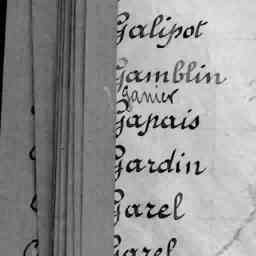 Galipot
Gamblin
ganier
Gapais
Gardin
Garel
Garel